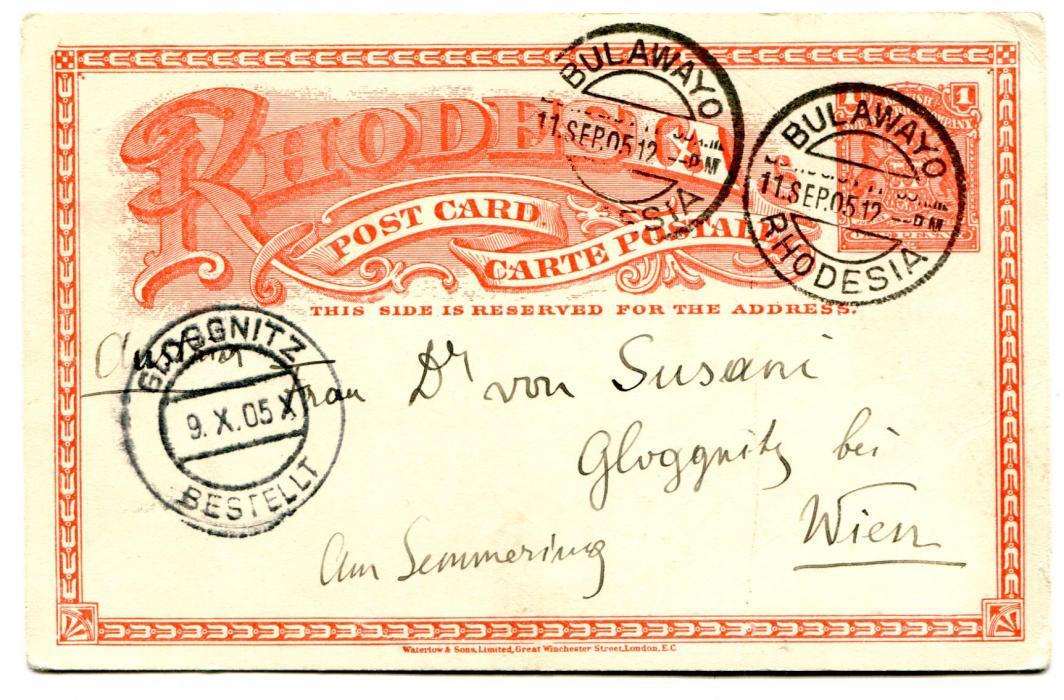 RHODESIA
POST CARD
CARTE POSTALE
THIS SIDE IS RESERVED FOR THE ADDRESS.
BULAWAYO
11.SEP.05.12 -PM
RHODESIA
BULAWAYO
11.SEP.05.12 -PM
RHODESIA
1 1
ONE PENNY
GLOGGNITZ
9. X. 05 X
BESTELLT
Frau Dr von Susani
Gloggnitz bei
Wien
Am Semmering
Waterlow & Sons, Limited, Great Winchester Street, London, E.C.